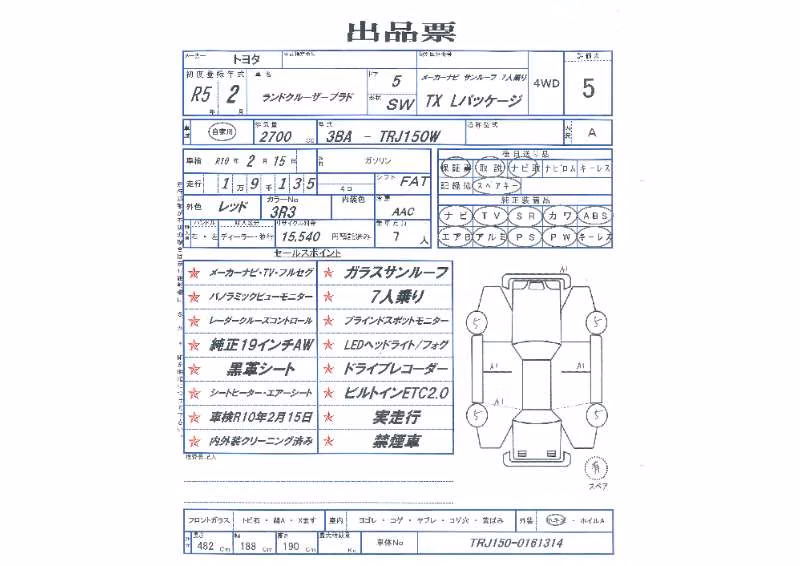 出品票
トヨタ
初度登録年式 車名 ドア 5 メーカーナビ サンルーフ 7人乗り 4WD 評価点 5
R5年 2月 ランドクルーザープラド 形状 SW TX Lパッケージ
自家用 排気量 2700 cc 型式 3BA - TRJ150W 内装 A
車検 R10年 2月 15日 ガソリン
後日送り品
保証書 取説 ナビ取 ナビロム キーレス
記録簿 スペアキー
走行 1万9千135 シフト FAT
外色 レッド カラーNo 3R3 内装色 冷房 AAC
純正装備品
ナビ TV SR カワ ABS
エアB アルミ PS PW キーレス
ハンドル 右・左 ディーラー・並行 リサイクル料金 15,540 円預託済み 乗車定員 7人
セールスポイント
★ メーカーナビ・TV・フルセグ ★ ガラスサンルーフ
★ パノラミックビューモニター ★ 7人乗り
★ レーダークルーズコントロール ★ ブラインドスポットモニター
★ 純正19インチAW ★ LEDヘッドライト/フォグ
★ 黒革シート ★ ドライブレコーダー
★ シートヒーター・エアーシート ★ ビルトインETC2.0
★ 車検R10年2月15日 ★ 実走行
★ 内外装クリーニング済み ★ 禁煙車
A1
5 5
A1 A1
A1
5 5
有
スペア
フロントガラス トビ石・線A・Xます 室内 ヨゴレ・コゲ・ヤブレ・コゲ穴・黄ばみ 外装 ・ホイルA
長さ 482 Cm 巾 188 Cm 高さ 190 Cm 最大積載量 Kg 車体No TRJ150-0161314